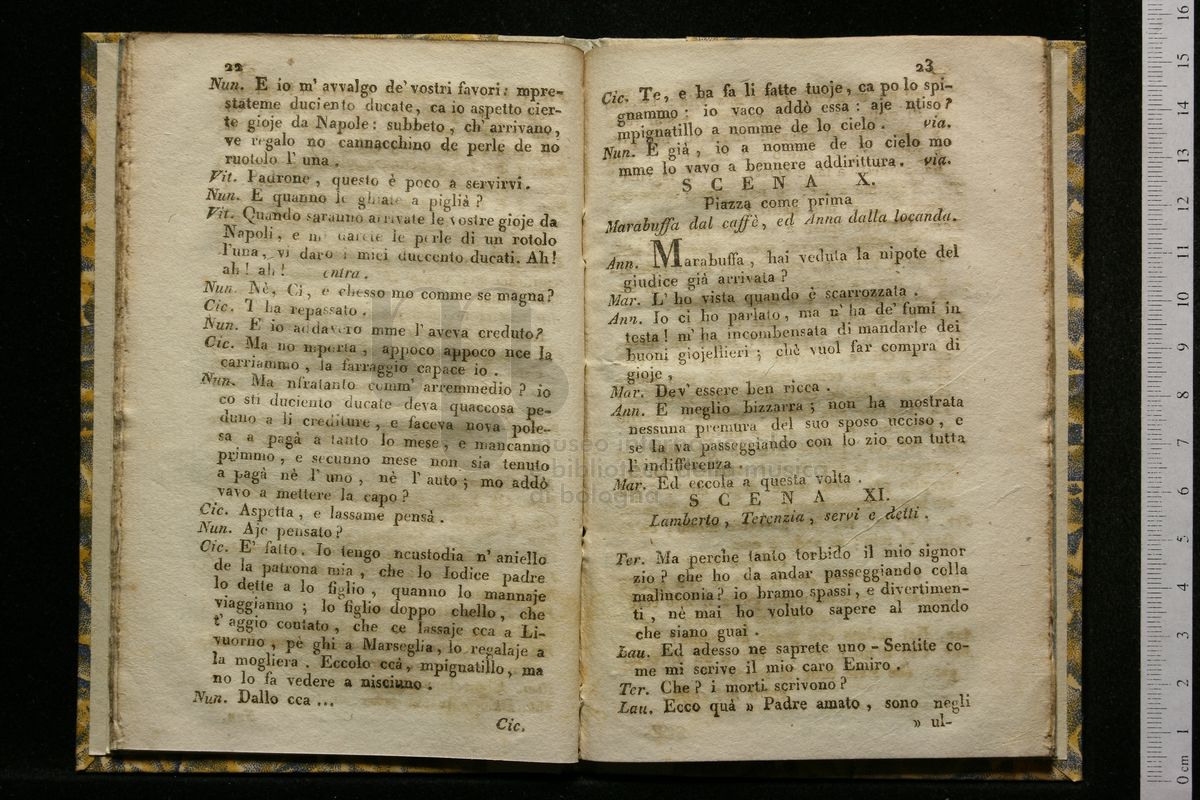 22
Nun. E io m' avvalgo de' vostri favori: mpre-
stateme duciento ducate, ca io aspetto cier-
te gioje da Napole: subbeto, ch' arrivano,
ve regalo no cannacchino de perle de no
ruotolo l' una.
Vit. Padrone, questo è poco a servirvi.
Nun. E quanno le ghiate a piglià?
Vit. Quando saranno arrivate le vostre gioje da
Napoli, e m' darete le perle di un rotolo
l'una, vi darò i miei duecento ducati. Ah!
ah! ah! entra.
Nun. Nè, Ci, e chesso mo comme se magna?
Cic. T' ha repassato.
Nun. E io addavero mme l' aveva creduto?
Cic. Ma no mporta, appoco appoco nce la
carriammo, la farraggio capace io.
Nun. Ma nfratanto comm' arremmedio? io
co sti duciento ducate deva quaccosa pe-
duno a li crediture, e faceva nova pole-
sa a pagà a tanto lo mese, e mancanno
primmo, e secunno mese non sia tenuto
a pagà nè l' uno, nè l' auto; mo addò
vavo a mettere la capo?
Cic. Aspetta, e lassame pensà.
Nun. Aje pensato?
Cic. E' fatto. Io tengo ncustodia n' aniello
de la patrona mia, che lo Iodice padre
lo dette a lo figlio, quanno lo mannaje
viaggianno; lo figlio doppo chello, che
t' aggio contato, che ce lassaje cca a Li-
vuorno, pè ghi a Marseglia, lo regalaje a
la mogliera. Eccolo ccà, mpignatillo, ma
no lo fa vedere a nisciuno.
Nun. Dallo cca ...
Cic.
23
Cic. Te, e ba fa li fatte tuoje, ca po lo spi-
gnammo: io vaco addò essa: aje ntiso?
mpignatillo a nomme de lo cielo. via.
Nun. E già, io a nomme de lo cielo mo
mme lo vavo a bennere addirittura. via.
SCENA X.
Piazza come prima
Marabuffa dal caffè, ed Anna dalla locanda.
Ann. Marabuffa, hai veduta la nipote del
giudice già arrivata?
Mar. L' ho vista quando è scarrozzata.
Ann. Io ci ho parlato, ma n' ha de' fumi in
testa! m' ha incombensata di mandarle dei
buoni giojellieri; chè vuol far compra di
gioje,
Mar. Dev' essere ben ricca.
Ann. E meglio bizzarra; non ha mostrata
nessuna premura del suo sposo ucciso, e
se la va passeggiando con lo zio con tutta
l' indifferenza.
Mar. Ed eccola a questa volta.
SCENA XI.
Lamberto, Terenzia, servi e detti.
Ter. Ma perche tanto torbido il mio signor
zio? che ho da andar passeggiando colla
malinconia? io bramo spassi, e divertimen-
ti, nè mai ho voluto sapere al mondo
che siano guai.
Lau. Ed adesso ne saprete uno - Sentite co-
me mi scrive il mio caro Emiro.
Ter. Che? i morti scrivono?
Lau. Ecco quà » Padre amato, sono negli
» ul-
museo internazionale
biblioteca della musica
di bologna
16
15
14
13
12
11
10
9
8
7
6
5
4
3
2
1
0 cm